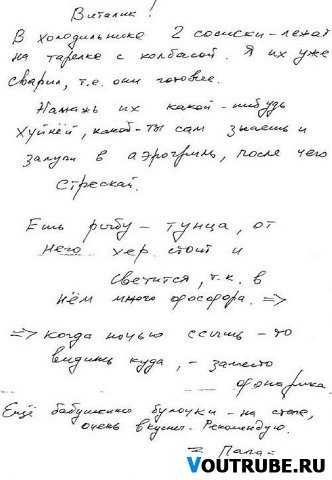 Виталик!
В холодильнике 2 сосиски - лежат
на тарелке с колбасой. Я их уже
сварил, т.е. они готовые.
Намажь их какой-нибудь
хуйнёй, какой-ты сам знаешь и
залупи в аэрогриль, после чего
стрескай.
Ешь рыбу - тунца, от
него хер стоит и
светится, т.к. в
нём много фосфора. =>
=> Когда ночью ссышь - то
видишь куда, - заместо
фонарика.
Ещё бабушкино булочки - на столе,
очень вкусные. Рекомендую.
= Папа =
VOUTRUBE.RU